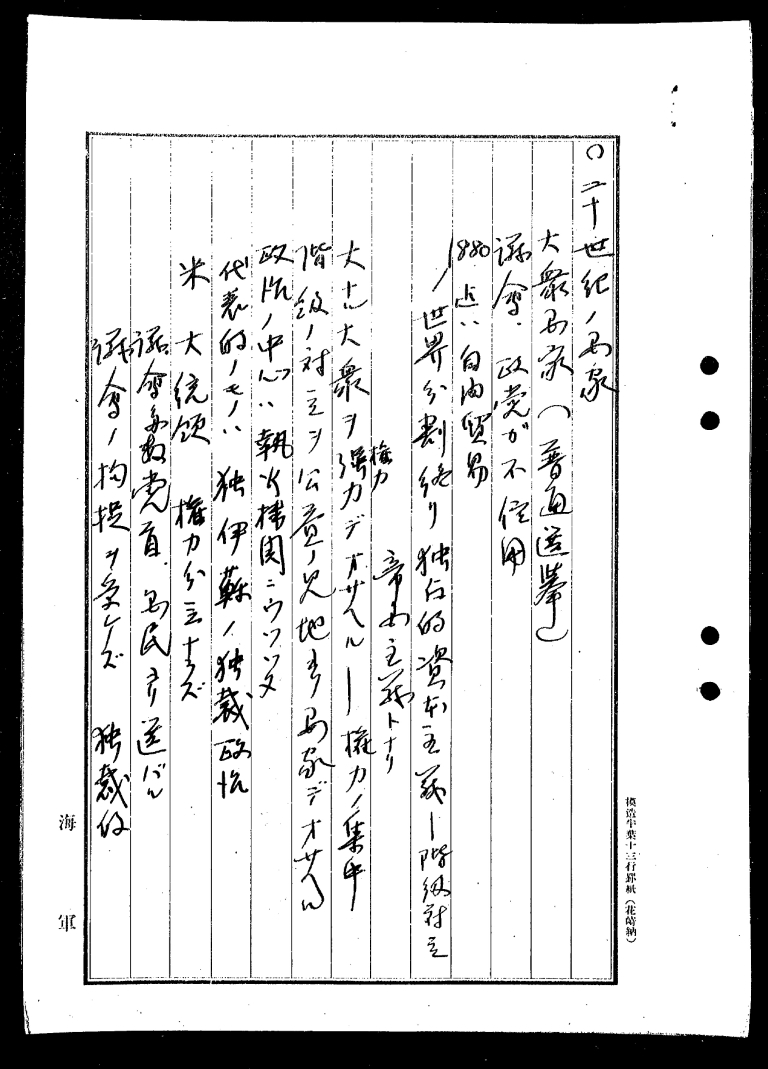 〇二十世紀ノ国家
大衆国家(普通選挙)
議会、政党ガ不信用
1880迄ハ自由貿易
ノ世界分割終リ独占的資本主義ー階級対立
帝国主義トナリ
大ナル大衆ヲ強力デオサヘルー権力ノ集中
権力
階級ノ対立ヲ公益ノ見地ヨリ国家デオサヘル
政治ノ中心ハ執行機関ニウツツタ
代表的ノモノハ独伊蘇ノ独裁政治
米 大統領 権力分立ナラズ
議会多数党首、国民ヨリ選バル
議会ノ拘捉ヲ受ケズ 独裁的
海軍